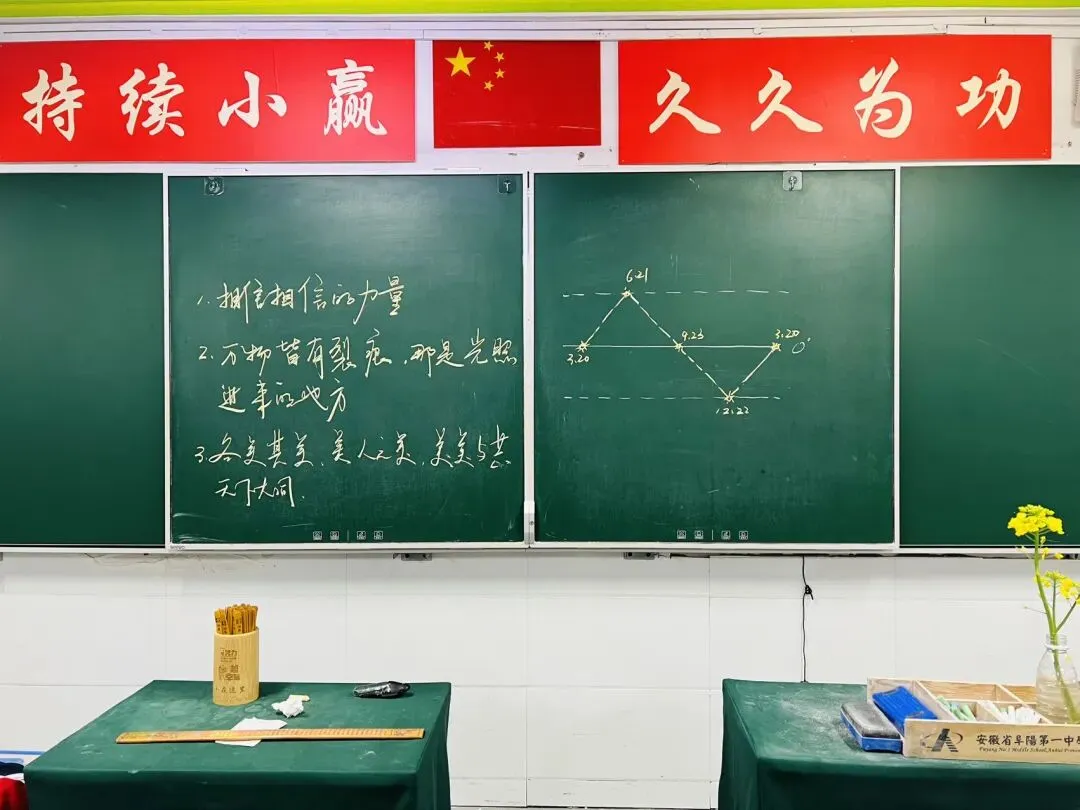 持续小赢
久久为功
1. 拥信相信的力量
2. 万物皆有裂痕，那是光照
进来的地方
3. 各美其美，美人之美，美美与共
天下大同.
6.21
3.20
9.23
3.20
0°
12.22
安徽省阜陽第一中學
Fuyang No.1 Middle School, Anhui